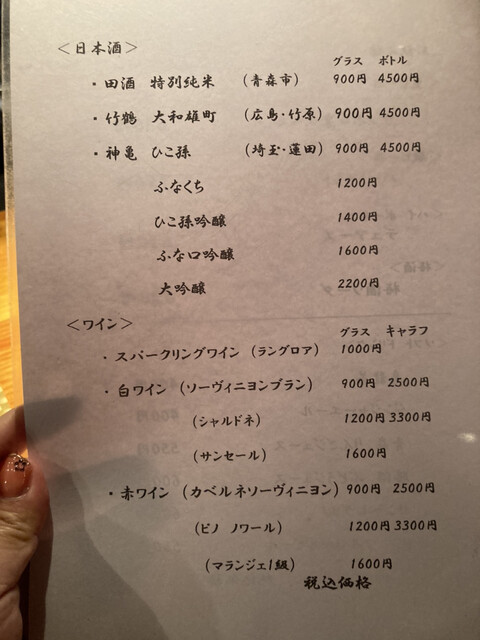 <日本酒>
グラス ボトル
・田酒 特別純米 (青森市) 900円 4500円
・竹鶴 大和雄町 (広島・竹原) 900円 4500円
・神亀 ひこ孫 (埼玉・蓮田) 900円 4500円
ふなくち 1200円
ひこ孫吟醸 1400円
ふな口吟醸 1600円
大吟醸 2200円
<ワイン>
グラス キャラフ
・スパークリングワイン (ラングロア) 1000円
・白ワイン (ソーヴィニヨンブラン) 900円 2500円
(シャルドネ) 1200円 3300円
(サンセール) 1600円
・赤ワイン (カベルネソーヴィニヨン) 900円 2500円
(ピノ ノワール) 1200円 3300円
(マランジェ1級) 1600円
税込価格